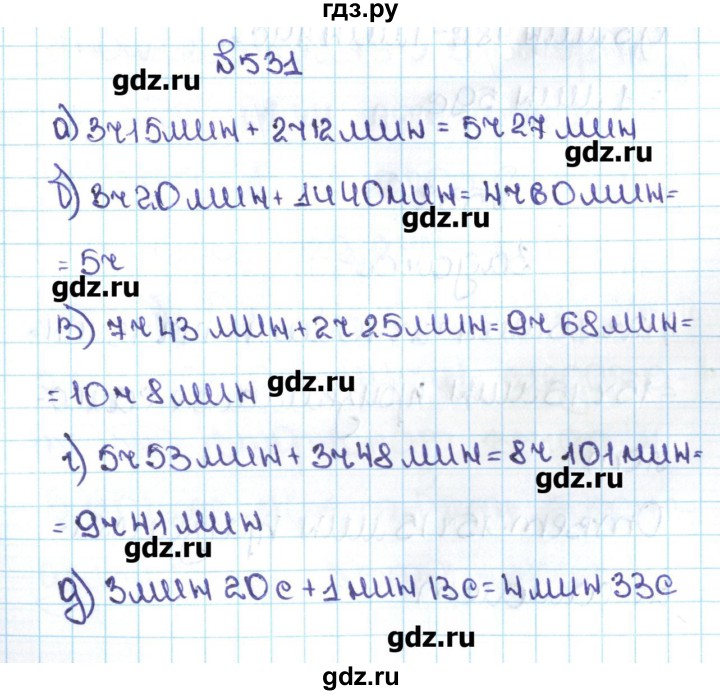 гдз.ру
№531
gdz.ru
а) 3ч15мин + 2ч12мин = 5ч27мин
gdz.ru
б) 3ч20мин + 1ч40мин = 4ч60мин =
gdz.ru
= 5ч
gdz.ru
в) 7ч43мин + 2ч25мин = 9ч68мин =
= 10ч8мин gdz.ru
г) 5ч53мин + 3ч48мин = 8ч101мин =
gdz.ru
= 9ч41мин
gdz.ru
д) 3мин 20с + 1мин 13с = 4мин 33с
gdz.ru
gdz.ru